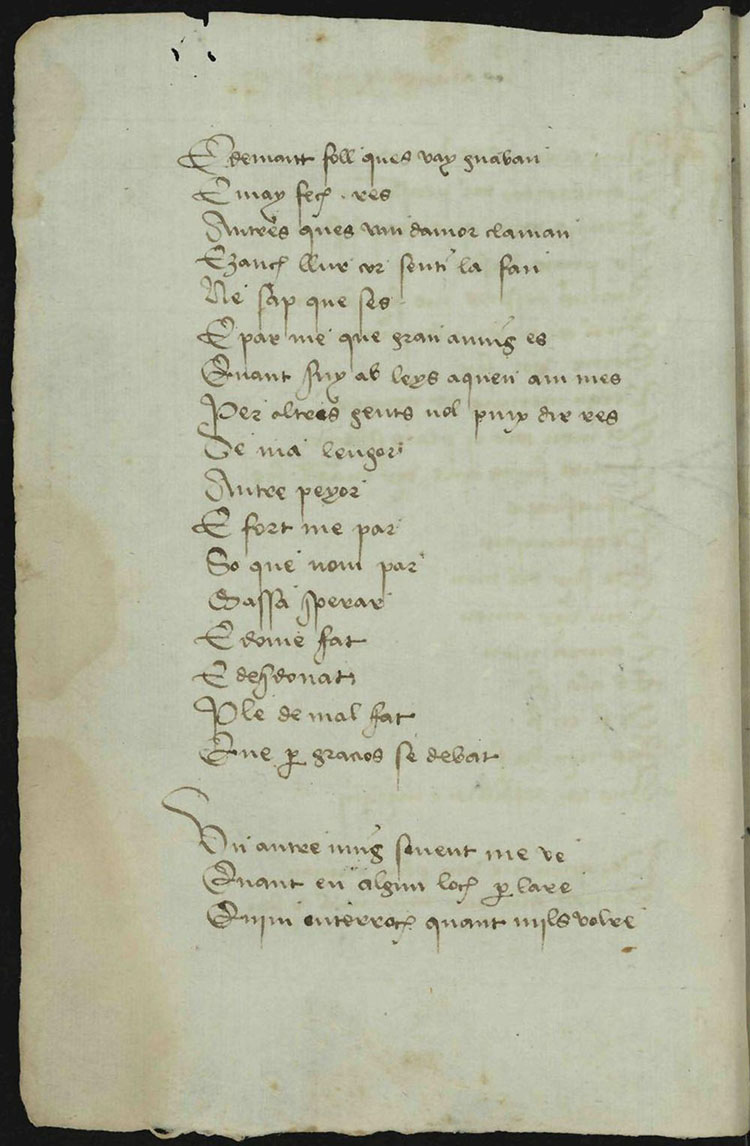 E demantt foll ques vay gnaban
E may fech . res
Autres ques van damor claman
E zanch llur cor senti la fan
Ne sap que ses
E par me que gran anuig es
Quant suy ab leys aquen am mes
Per altres gents nol puix dir res
De ma lengor
Autre peyor
E fort me par
So que nom par
Dassa sperar
E dome fat
E desdonat
Ple de mal fat
Que per gracios se debat
Un autre nuig sovent me ve
Quant en algun loch perlare
Quim enterroch quant mils volre